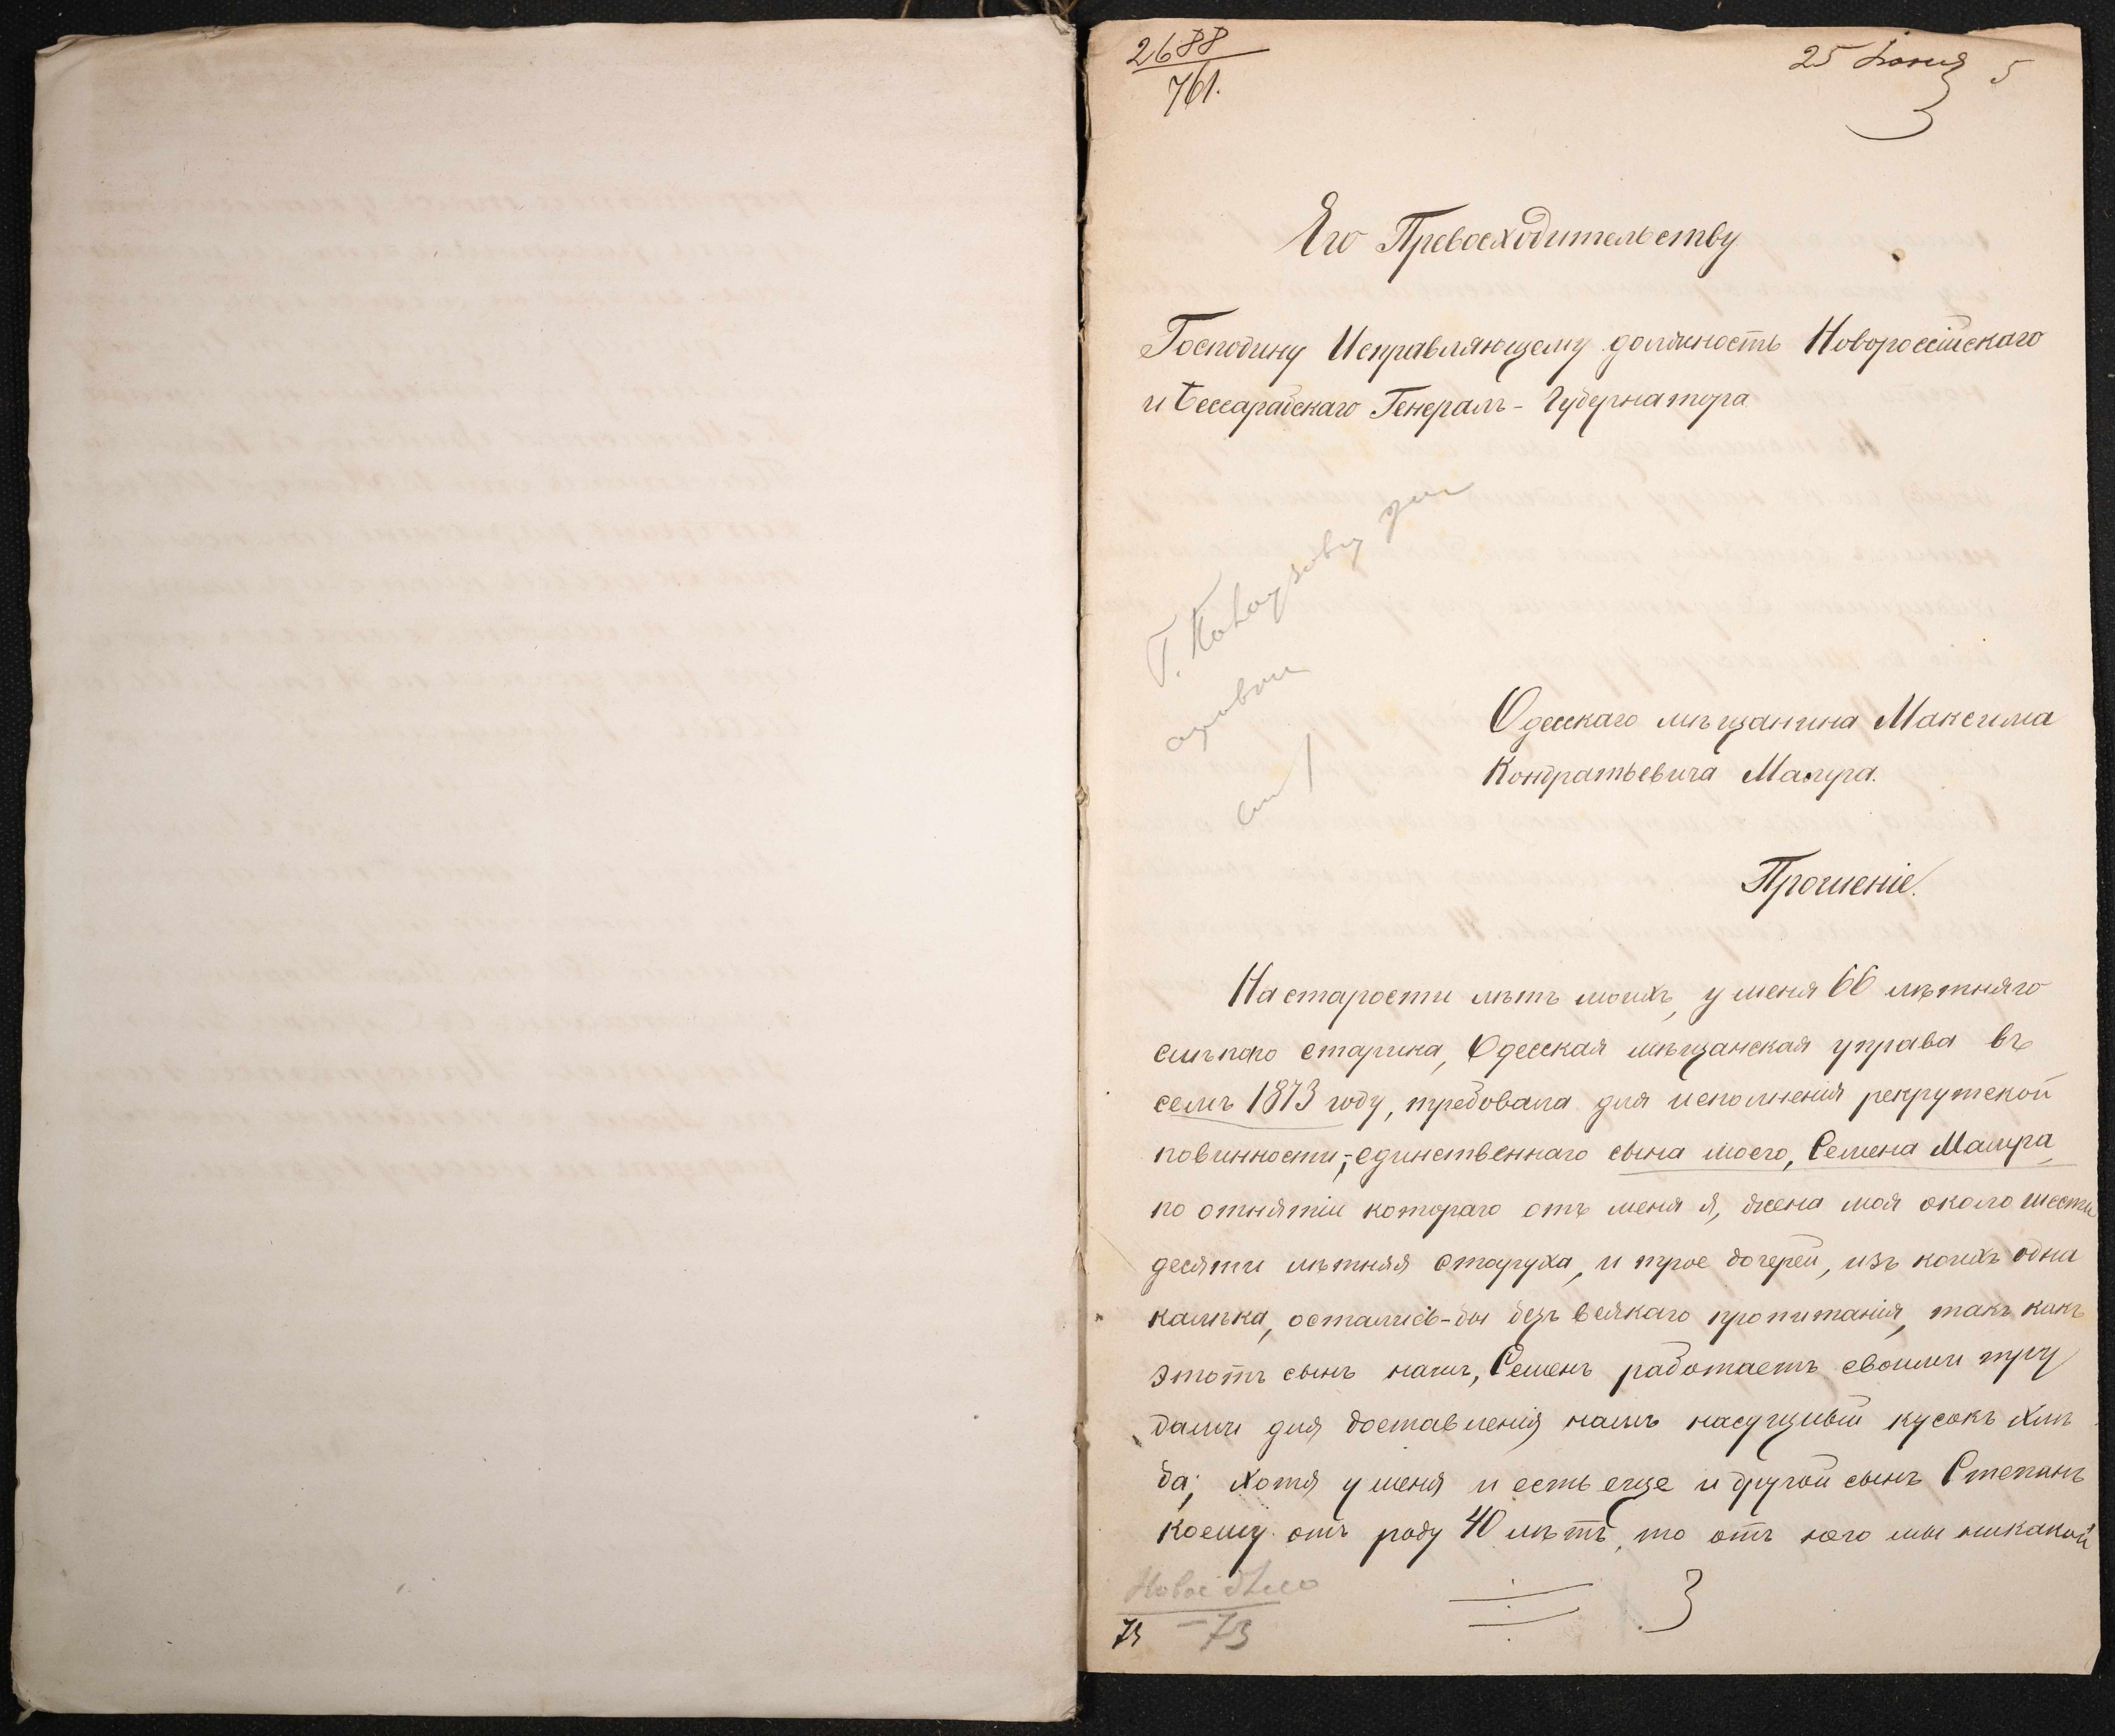 2688
761.
25 Июня 5
Его Превосходительству
Господину Исправляющему должность Новороссійскаго
и Бессарабскаго Генералъ-Губернатора
Г.
Одесскаго мѣщанина Максима
Кондратьевича
Прошеніе.
На старости лѣтъ моихъ, у меня 66 лѣтняго
слѣпого старика, Одесская мѣщанская управа въ
семъ 1873 году, требовала для исполненія рекрутской
повинности, единственнаго сына моего, Семена
по отнятіи котораго отъ меня я, жена моя около шести
десяти лѣтняя старуха, и трое дочерей, изъ коихъ одна
калѣка, остались-бы безъ всякаго пропитанія, такъ какъ
этотъ сынъ нашъ, Семенъ работаетъ своими тру
дами для доставленія намъ насущный кусокъ хлѣ
ба; хотя у меня и есть еще и другой сынъ Степанъ
коему отъ роду 40 лѣтъ, но отъ него мы никакой
Новое дѣло
73 - 73
3